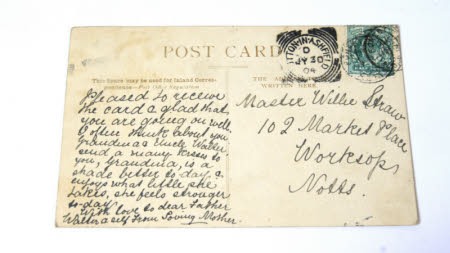 POST CARD
This Space may be used for Inland Corres-
pondence—Post Office Regulation
THE AD
WRITTEN HERE.
TTON-IN-ASHFIELD
D
JY 30
04
Pleased to receive
the card & glad that
you are going on well
I often think about you
Grandma & Uncle Walter
send a many kisses to
you, grandma, is a
shade better to-day &
enjoys what little she
takes, she feels stronger
to-day.
With love to dear Father
Walter & self From Loving Mother.
Master Willie Straw
102 Market Place
Worksop
Notts.